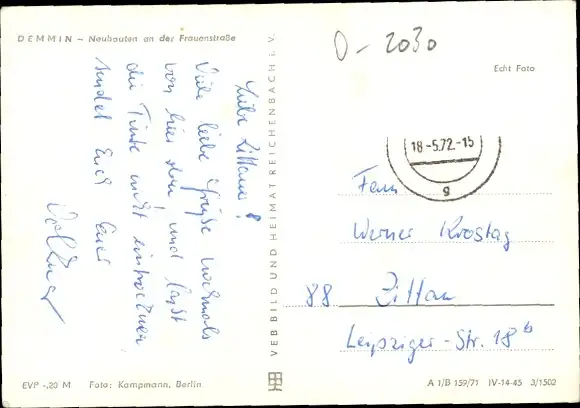 DEMMIN – Neubauten an der Frauenstraße
D-2030
Echt Foto
18.-5.72.-15
g
Liebe Zittauer!
Viele liebe Grüße nochmals
von hier oben und laßt
die Tinte nicht eintrocknen,
sendet Euch Euer
Volkmar
VEB BILD UND HEIMAT REICHENBACH i. V.
Fam.
Werner Krostag
88 Zittau
Leipziger-Str. 18b
EVP -,20 M Foto: Kampmann, Berlin
A 1/B 159/71 IV-14-45 3/1502